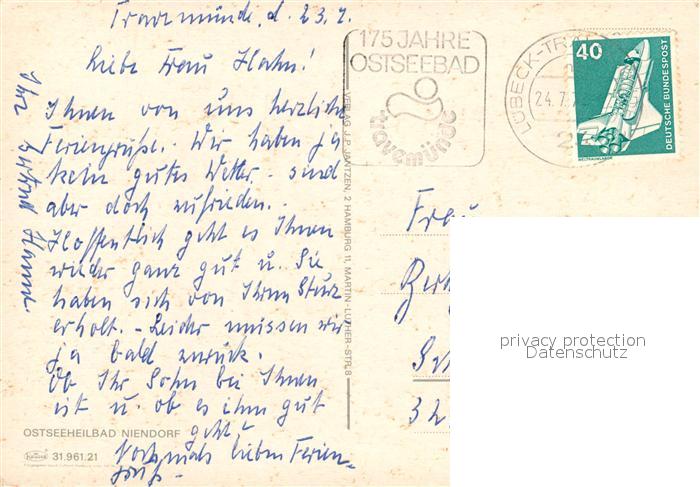 Travemünde, d. 23.7.
Liebe Frau Hahn!
Ihnen von uns herzliche
Feriengrüße. Wir haben ja
kein gutes Wetter - sind
aber doch zufrieden. -
Hoffentlich geht es Ihnen
wieder ganz gut u. Sie
haben sich von Ihrem Sturz
erholt. - Leider müssen wir
ja bald zurück.
Ob Ihr Sohn bei Ihnen
ist u. ob es ihm gut
geht?
Nochmals lieben Ferien-
gruß.
Ihre
175 JAHRE
OSTSEEBAD
travemünde
LÜBECK-TRA
24.7.
2
40
DEUTSCHE BUNDESPOST
WELTRAUMLABOR
VERLAG J.P. JANTZEN, 2 HAMBURG 11, MARTIN-LUTHER-STR. 8
Frau
32
OSTSEEHEILBAD NIENDORF
Krüger 31.961.21
privacy protection
Datenschutz